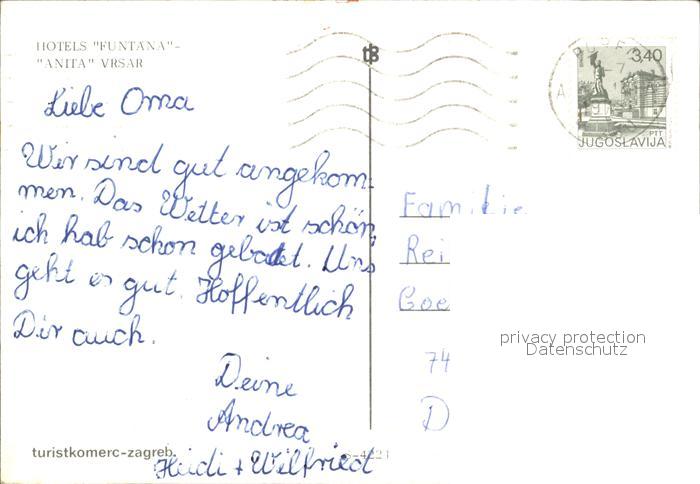 HOTELS "FUNTANA"-
"ANITA" VRSAR
Liebe Oma
Wir sind gut angekom-
men. Das Wetter ist schön,
ich hab schon gebadet. Uns
geht es gut. Hoffentlich
Dir auch.
Deine
Andrea
Heidi + Wilfried
turistkomerc-zagreb.
tb
3,40
PTT
JUGOSLAVIJA
Familie
Rei
Goe
74
D
privacy protection
Datenschutz